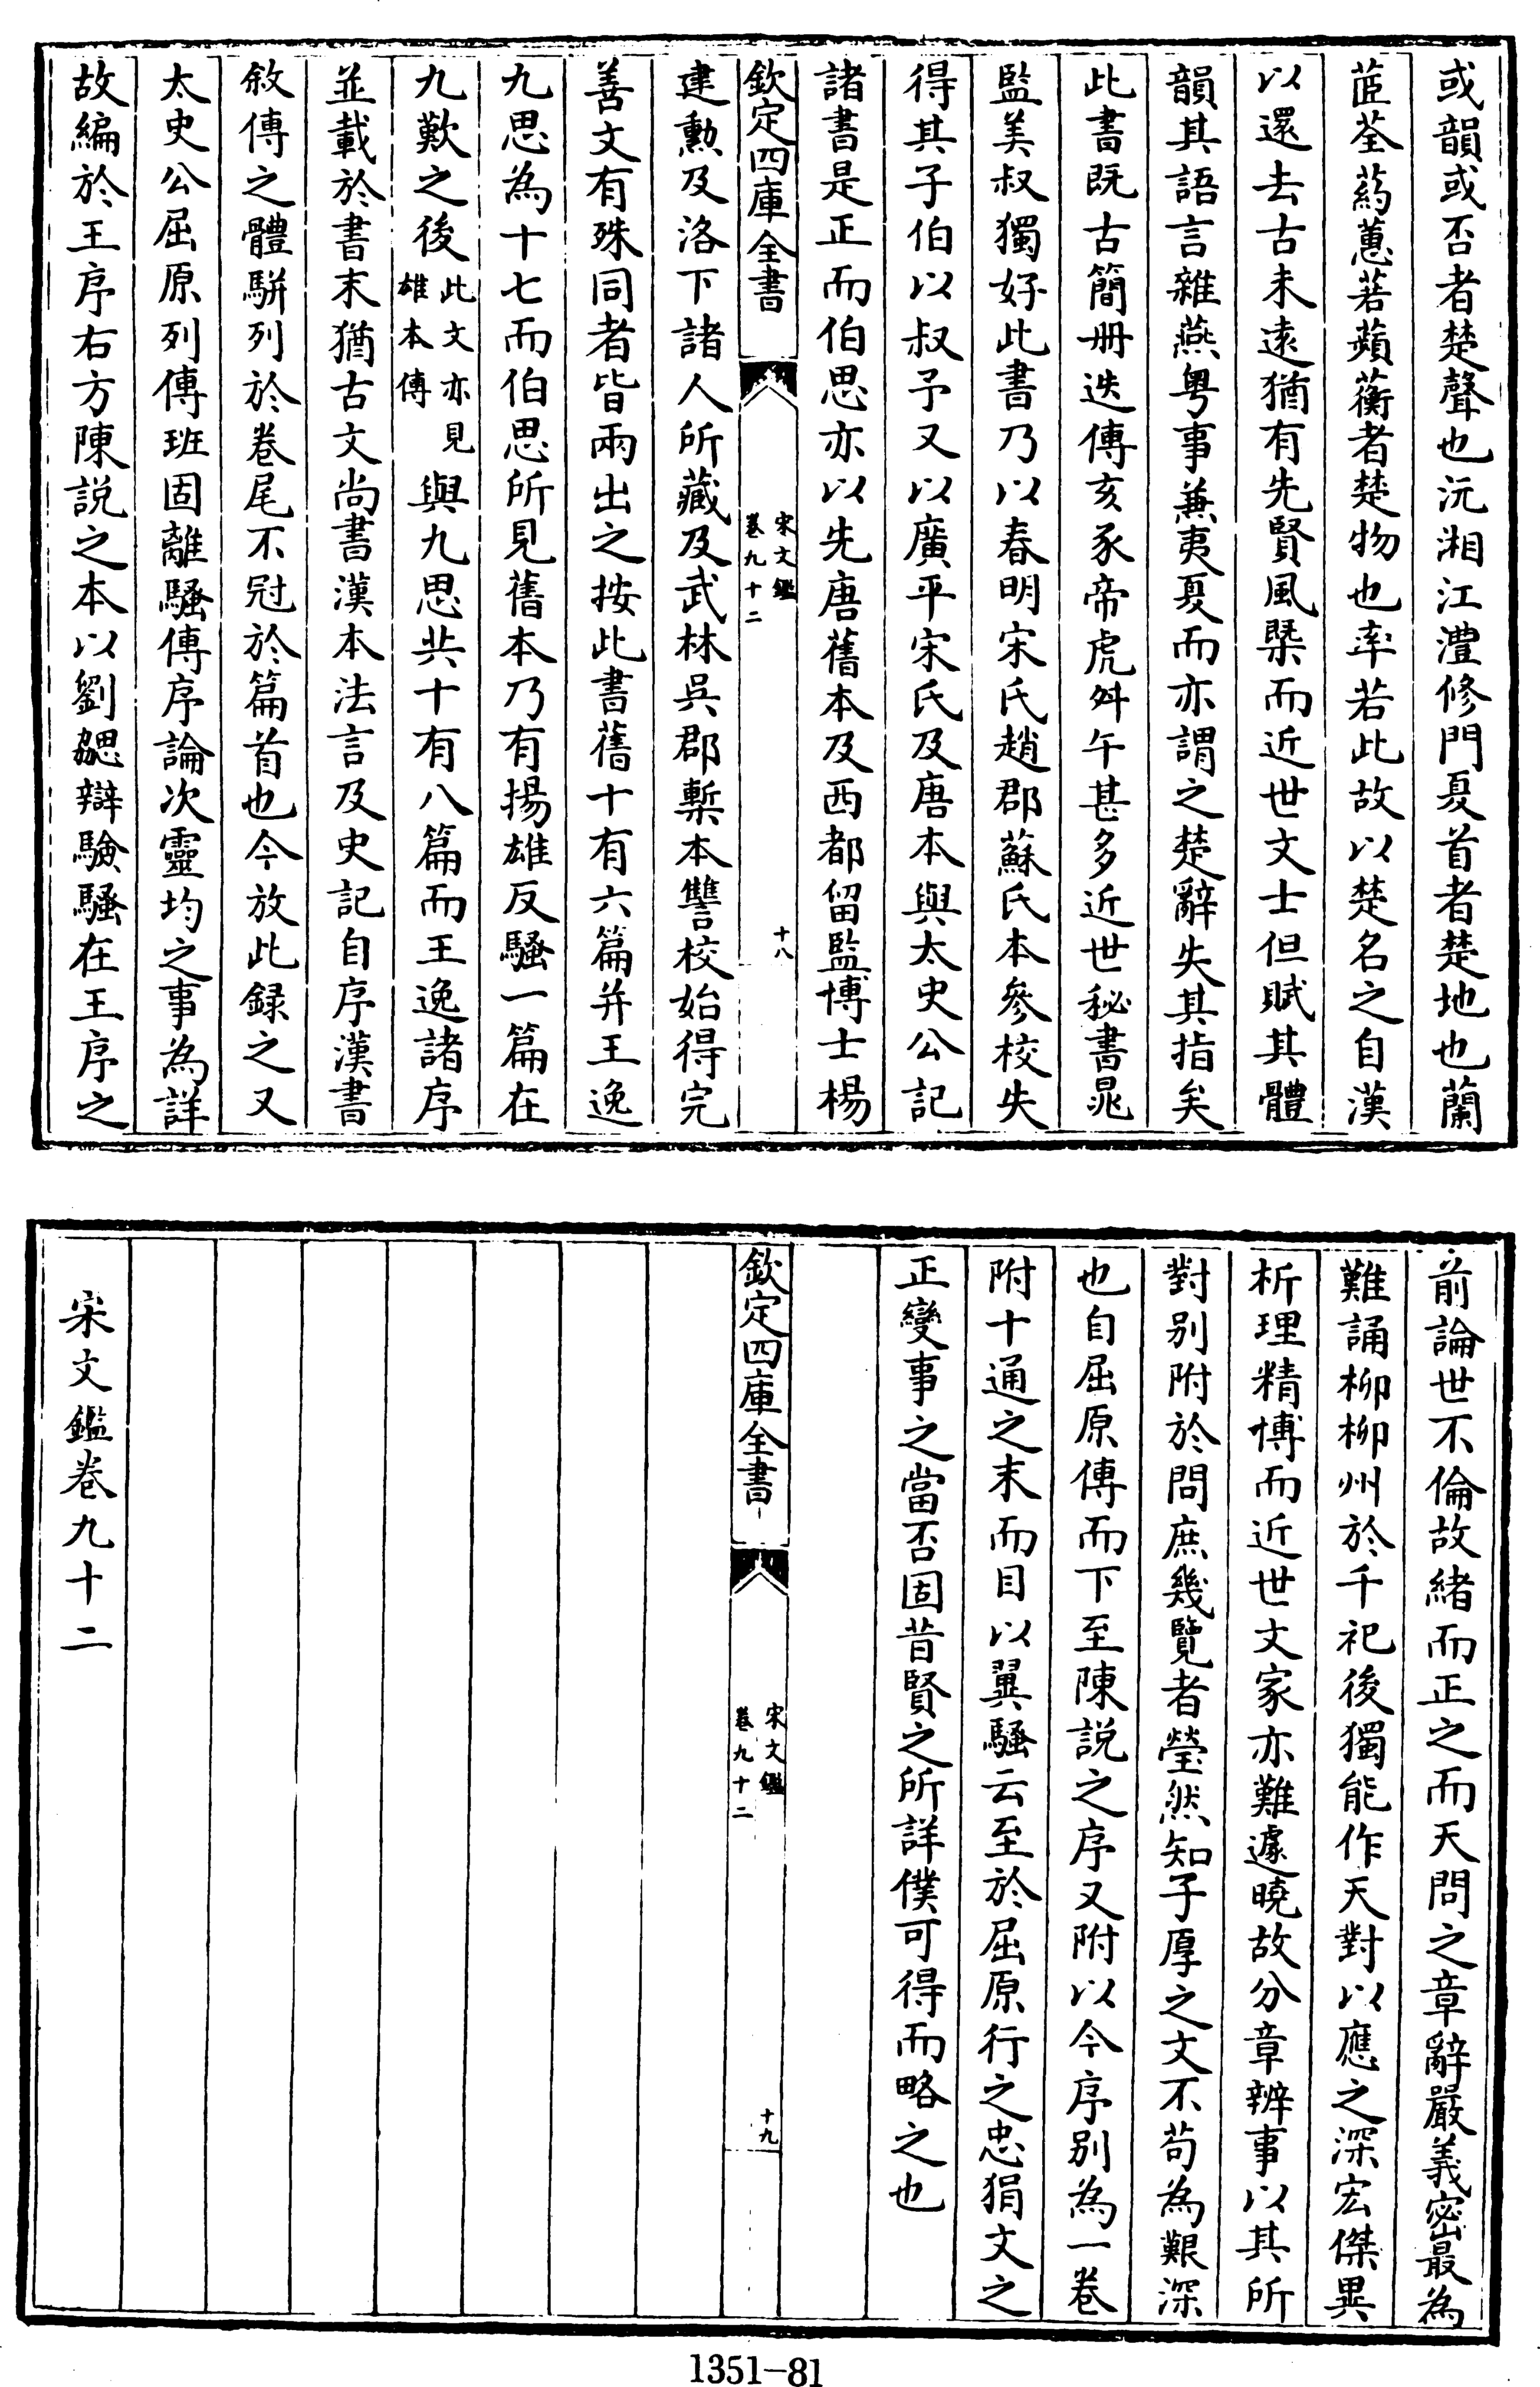 或韻或否者楚聲也沅湘江澧修門夏首者楚地也蘭
茝荃葯蕙若蘋蘅者楚物也率若此故以楚名之自漢
以還去古未遠猶有先賢風槩而近世文士但賦其體
韻其語言雜燕粤事兼夷夏而亦謂之楚辭失其指矣
此書既古簡册迭傳亥豕帝虎舛午甚多近世秘書晁
監美叔獨好此書乃以春明宋氏趙郡蘇氏本參校失
得其子伯以叔予又以廣平宋氏及唐本與太史公記
諸書是正而伯思亦以先唐舊本及西都留監博士楊
欽定四庫全書
宋文鑑
卷九十二
十八
建勲及洛下諸人所藏及武林吳郡槧本讐校始得完
善文有殊同者皆兩出之按此書舊十有六篇并王逸
九思為十七而伯思所見舊本乃有揚雄反騷一篇在
九歎之後此文亦見雄本傳與九思共十有八篇而王逸諸序
並載於書末猶古文尚書漢本法言及史記自序漢書
敘傳之體駢列於卷尾不冠於篇首也今放此録之又
太史公屈原列傳班固離騷傳序論次靈均之事為詳
故編於王序右方陳説之本以劉勰辯驗騷在王序之
前論世不倫故緒而正之而天問之章辭嚴義宻最為
難誦柳柳州於千祀後獨能作天對以應之深宏傑異
析理精博而近世文家亦難遽曉故分章辨事以其所
對别附於問庶幾覽者瑩然知子厚之文不苟為艱深
也自屈原傳而下至陳説之序又附以今序别為一卷
附十通之末而目以翼騷云至於屈原行之忠狷文之
正變事之當否固昔賢之所詳僕可得而略之也
欽定四庫全書
宋文鑑
卷九十二
十九
宋文鑑卷九十二
1351-81